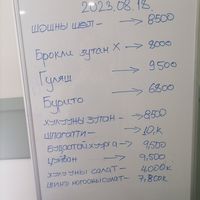 2023.08.18
ШОШНЫ ШӨЛ – 8500
Брокли зутан X → 8000
Гуляш → 9500
Бурито → 6800
ХУЛУУНЫ ЗУТАН – → 8500
Шпагетти – → 10,К
Будаатай хуурга → 9,500
Цуйван → 9,500
салат – 4000К
ШИНЭ НОГООНЫ САЛАТ – 7,800К